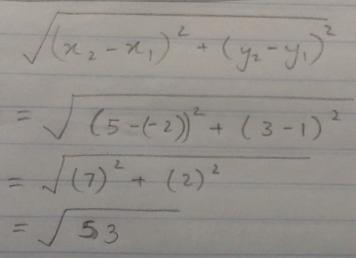 √((x₂ - x₁)² + (y₂ - y₁)²)
= √((5 - (-2))² + (3 - 1)²)
= √((7)² + (2)²)
= √53